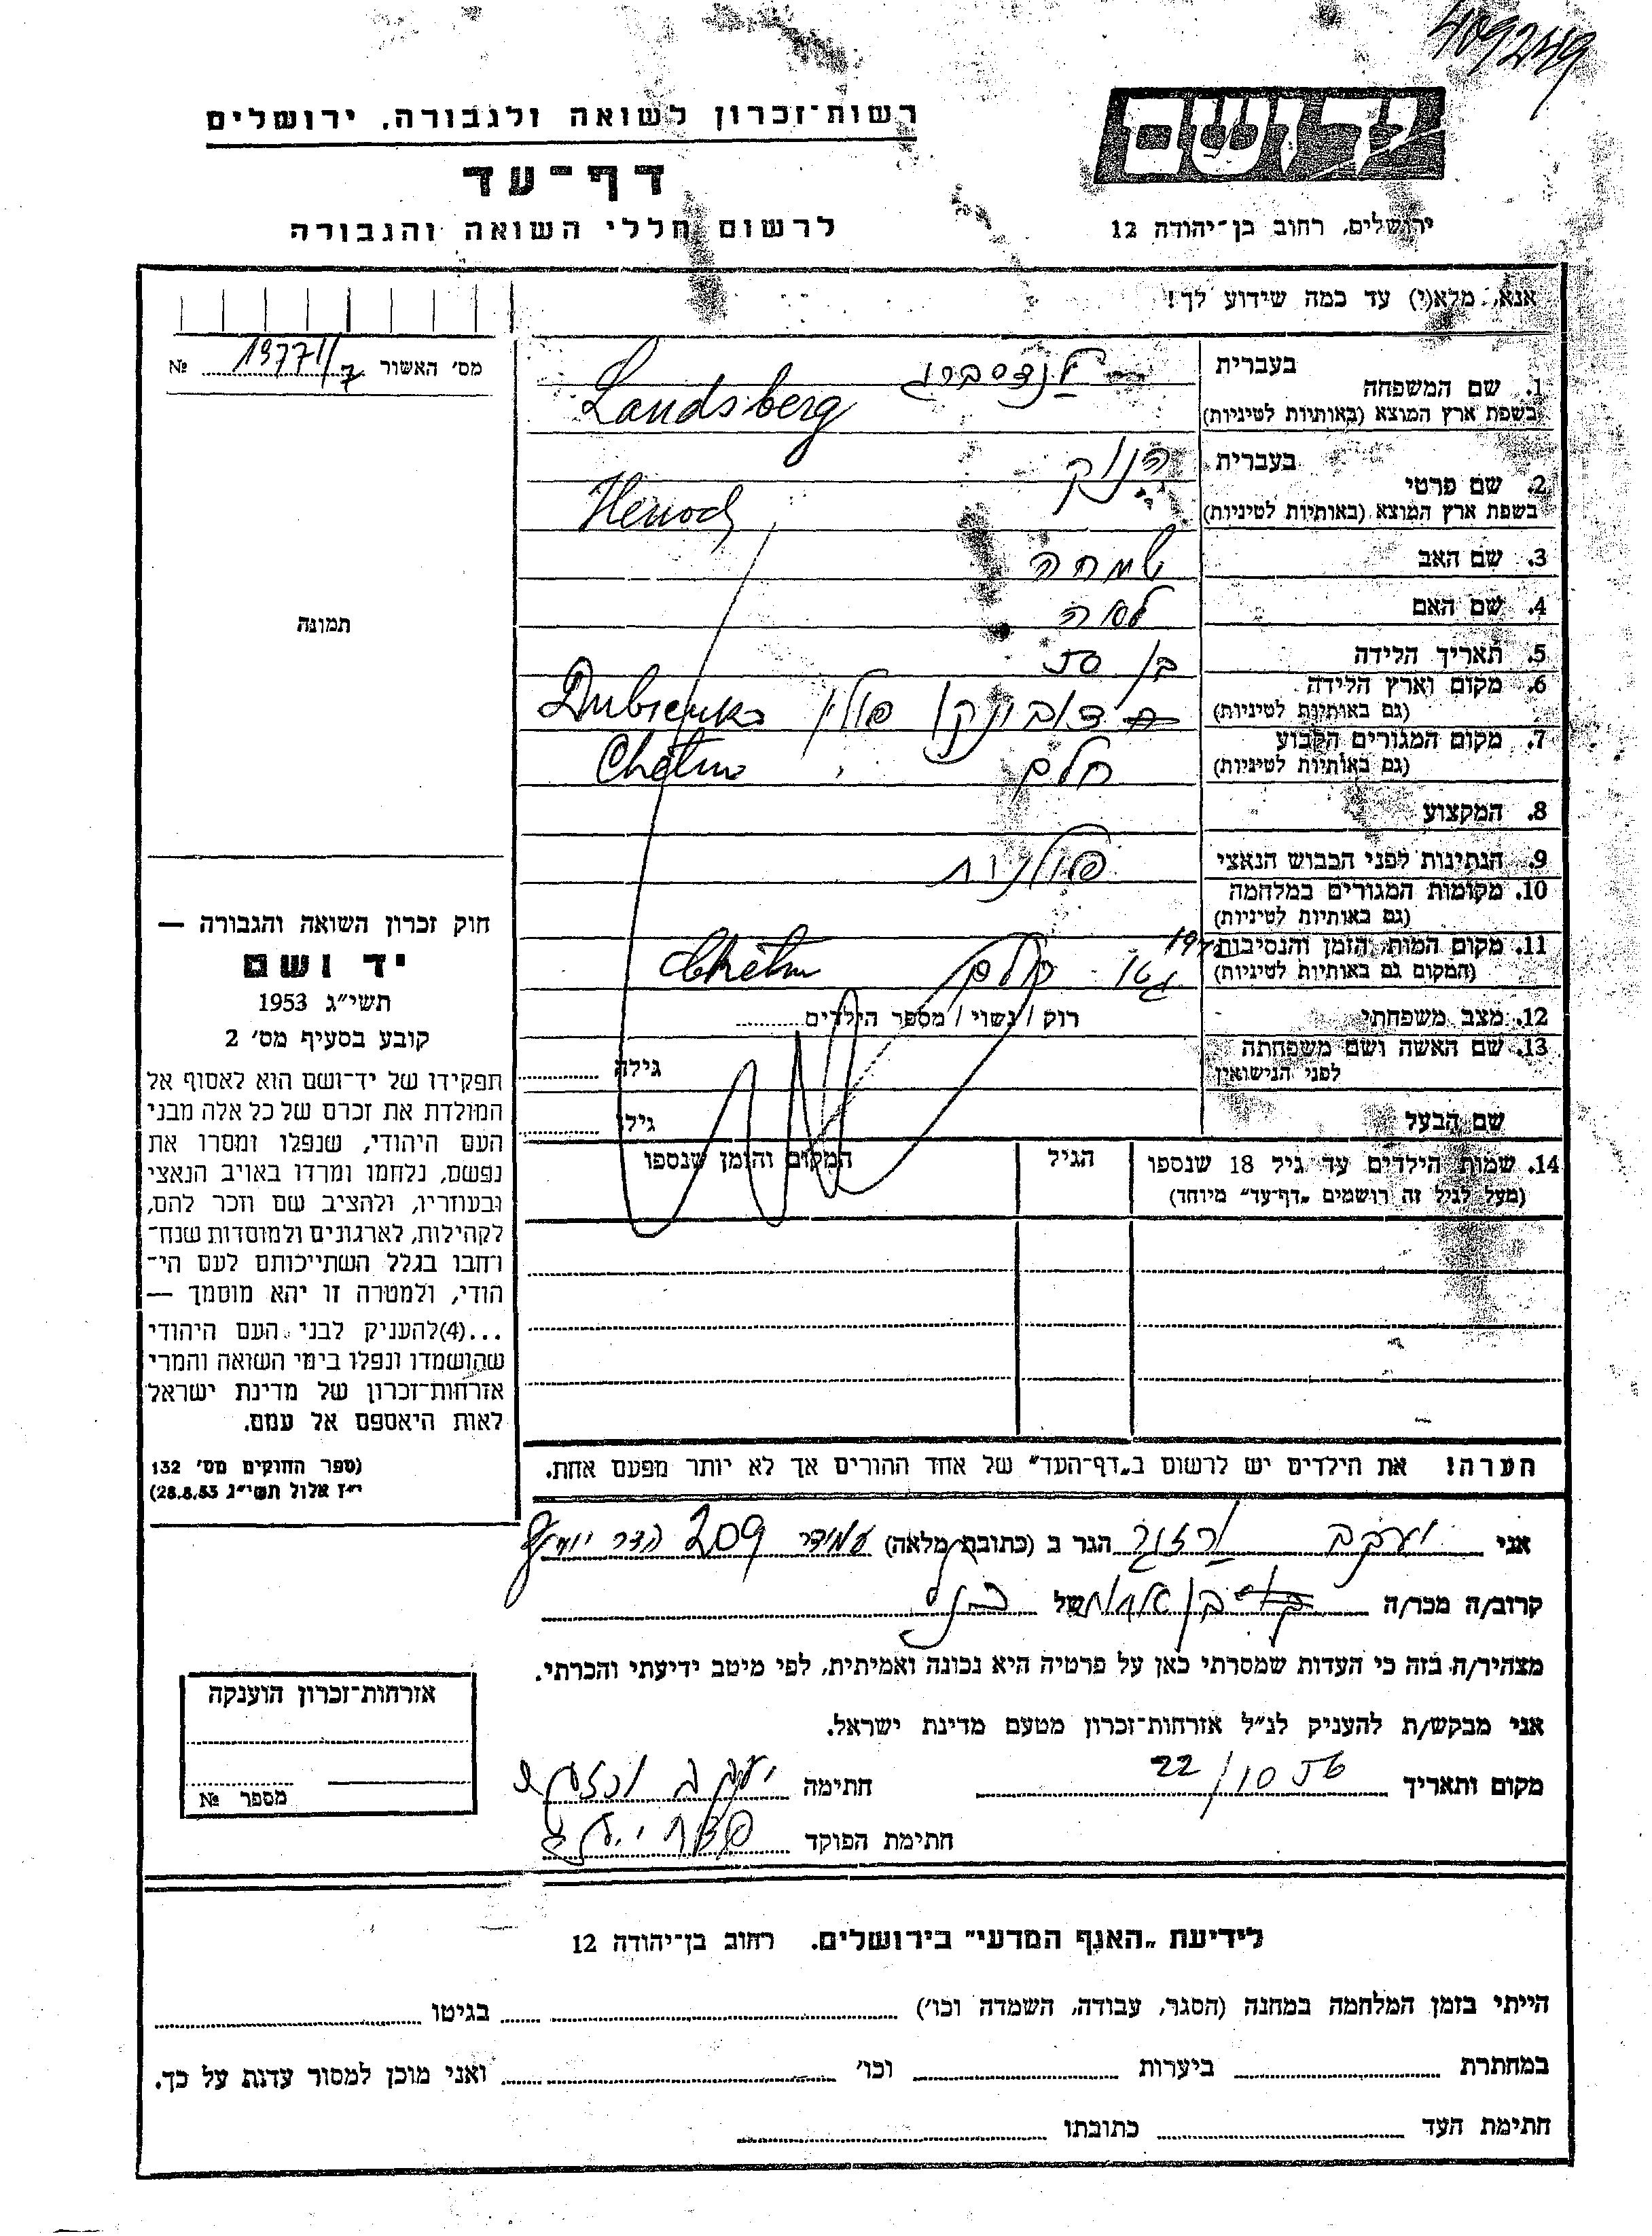 4092449
רשות־זכרון לשואה ולגבורה, ירושלים
דף־עד
לרשום חללי השואה והגבורה
יד ושם
ירושלים, רחוב בן־יהודה 12
אנא, מלא(י) עד כמה שידוע לך!
מס׳ האשור 19771/7 №
תמונה
1. שם המשפחה בעברית לנדסברג
בשפת ארץ המוצא (באותיות לטיניות) Landsberg
2. שם פרטי בעברית
בשפת ארץ המוצא (באותיות לטיניות) Henoch
3. שם האב שמחה
4. שם האם
5. תאריך הלידה בן
6. מקום וארץ הלידה (גם באותיות לטיניות) דובינקו פולין Dubienka
7. מקום המגורים הקבוע (גם באותיות לטיניות) חלם Chełm
8. המקצוע
9. הנתינות לפני הכבוש הנאצי פולנית
10. מקומות המגורים במלחמה (גם באותיות לטיניות)
11. מקום המות, הזמן והנסיבות (המקום גם באותיות לטיניות) גטו חלם Chełm
12. מצב משפחתי רוק / נשוי / מספר הילדים
13. שם האשה ושם משפחתה לפני הנישואין גילה
שם הבעל גילו
14. שמות הילדים עד גיל 18 שנספו הגיל המקום והזמן שנספו
(מעל לגיל זה רושמים „דף־עד״ מיוחד)
חוק זכרון השואה והגבורה —
יד ושם
תשי״ג 1953
קובע בסעיף מס׳ 2
תפקידו של יד־ושם הוא לאסוף אל
המולדת את זכרם של כל אלה מבני
העם היהודי, שנפלו ומסרו את
נפשם, נלחמו ומרדו באויב הנאצי
ובעוזריו, ולהציב שם וזכר להם,
לקהילות, לארגונים ולמוסדות שנח־
רחבו בגלל השתייכותם לעם הי־
הודי, ולמטרה זו יהא מוסמך —
...(4)להעניק לבני העם היהודי
שהושמדו ונפלו בימי השואה והמרי
אזרחות־זכרון של מדינת ישראל
לאות היאספם אל עמם.
(ספר החוקים מס׳ 132
י״ז אלול תשי״ג 28.8.53)
הערה! את הילדים יש לרשום ב„דף־העד״ של אחד ההורים אך לא יותר מפעם אחת.
אני יעקב הגר ב (כתובת מלאה) עמידר 209
קרוב/ה מכר/ה בן אחות של הנ״ל
מצהיר/ה בזה כי העדות שמסרתי כאן על פרטיה היא נכונה ואמיתית, לפי מיטב ידיעתי והכרתי.
אני מבקש/ת להעניק לנ״ל אזרחות־זכרון מטעם מדינת ישראל.
מקום ותאריך 22/10 56 חתימה יעקב
חתימת הפוקד
אזרחות־זכרון הוענקה
מספר №
לידיעת „האנף המדעי״ בירושלים. רחוב בן־יהודה 12
הייתי בזמן המלחמה במחנה (הסגר, עבודה, השמדה וכו׳) בגיטו
במחתרת ביערות וכו׳ ואני מוכן למסור עדות על כך.
חתימת העד כתובתו